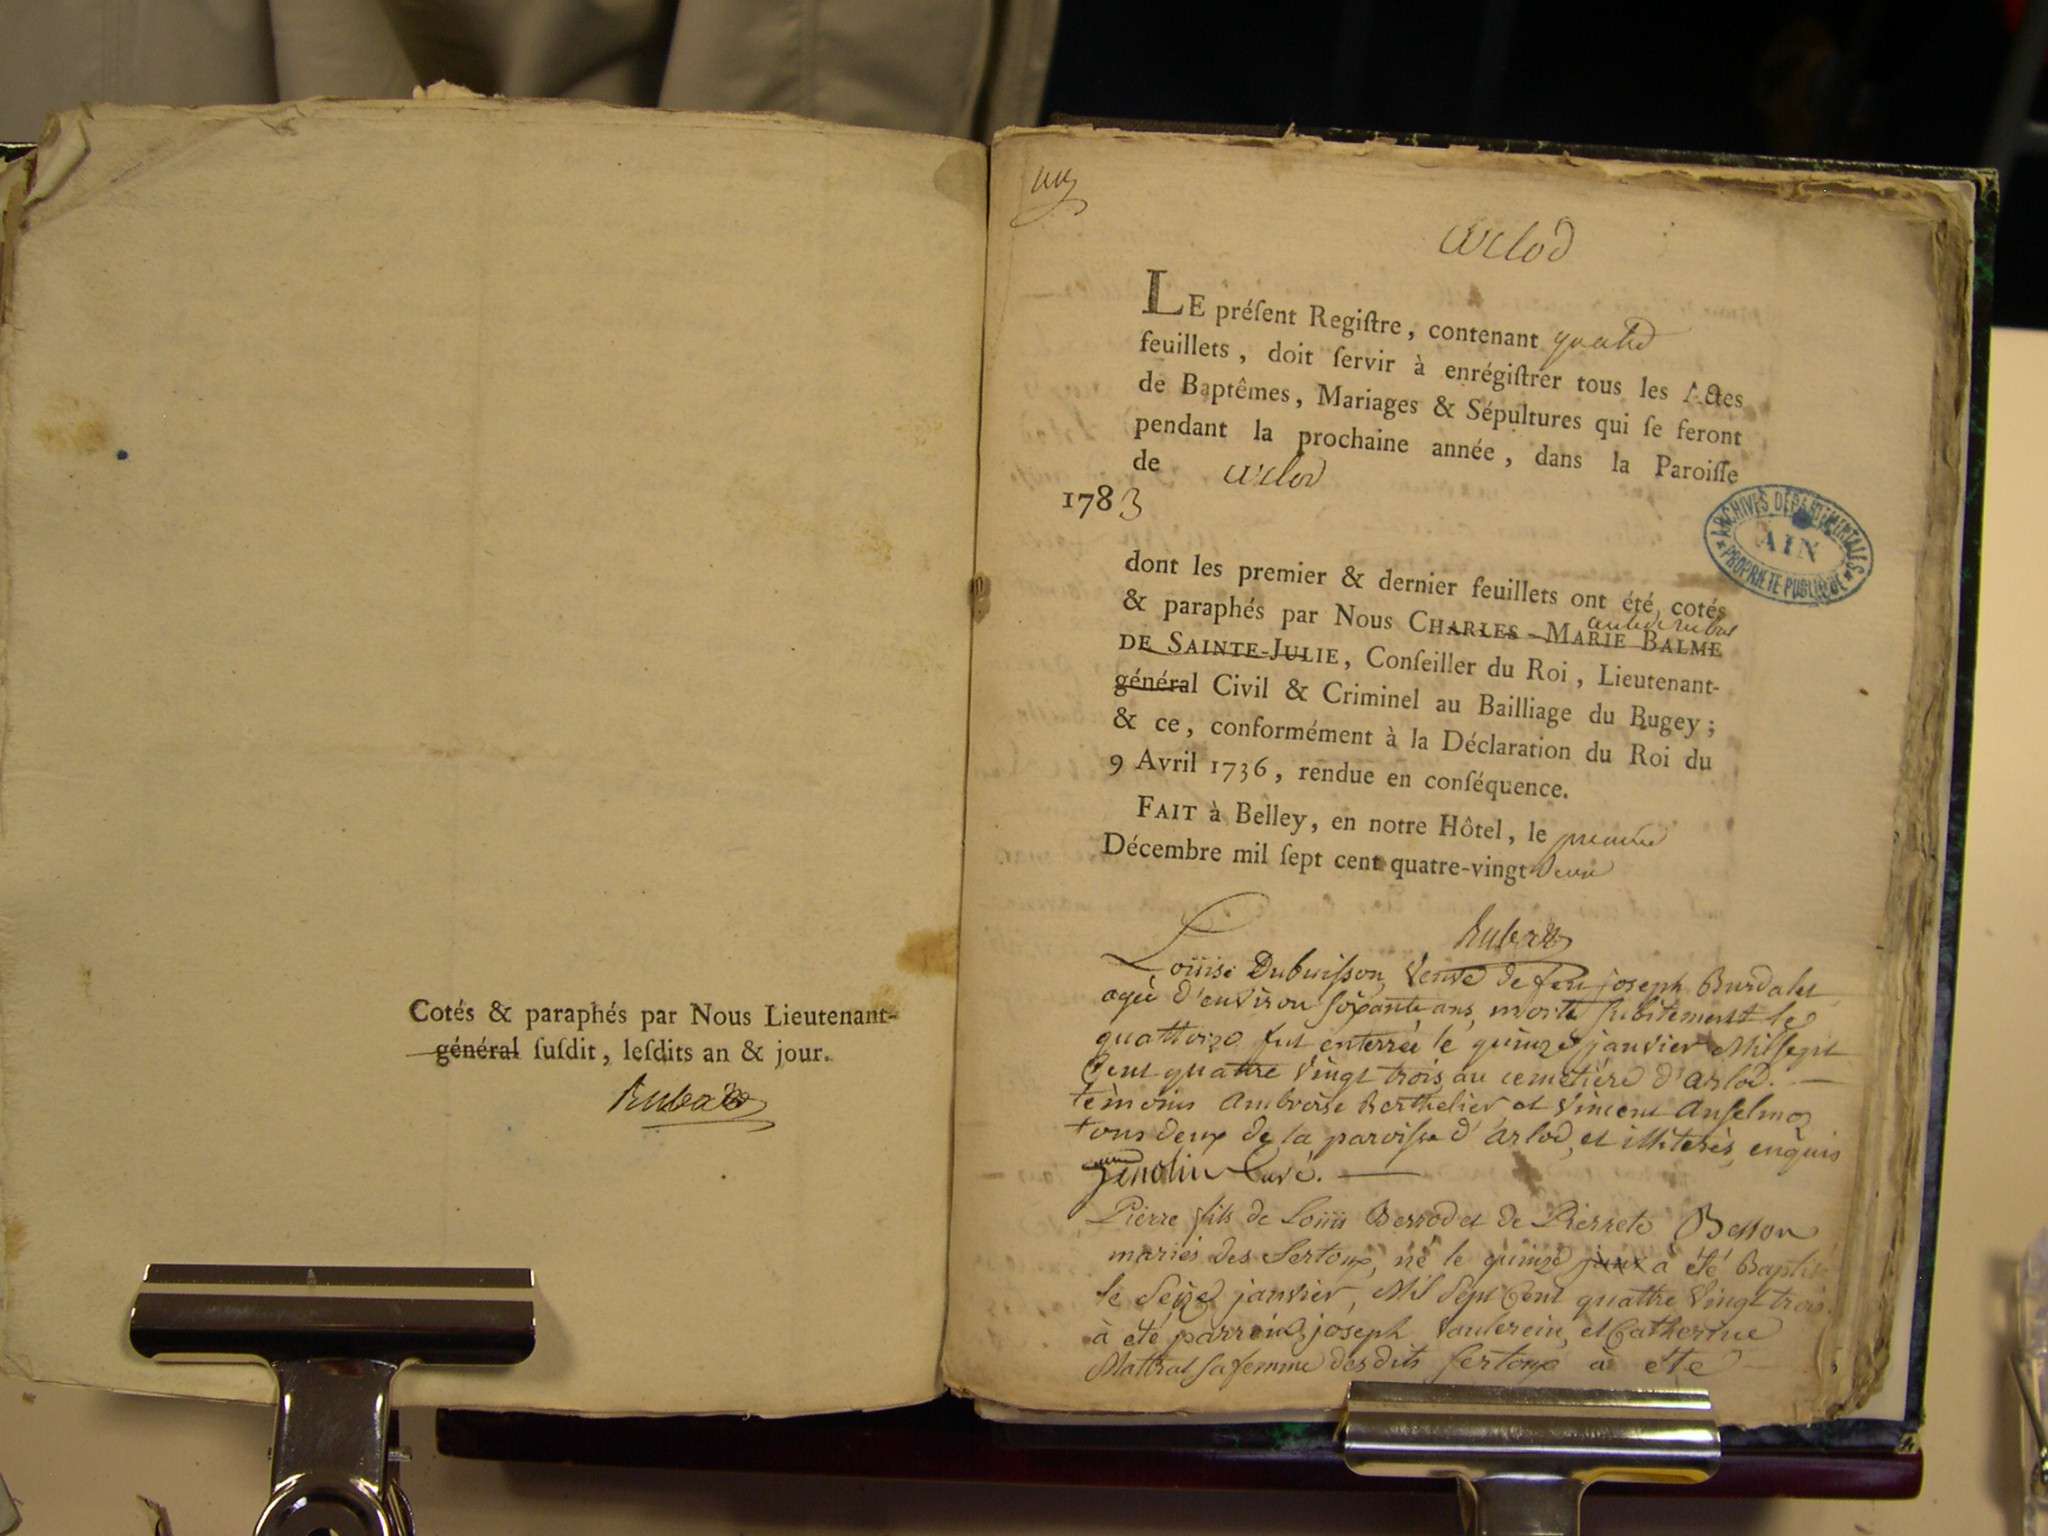 Cotés & paraphés par Nous Lieutenant-
général ſuſdit, leſdits an & jour.
Rubat
Arlod
LE préſent Regiſtre, contenant quatre
feuillets, doit ſervir à enrégiſtrer tous les Actes
de Baptêmes, Mariages & Sépultures qui ſe feront
pendant la prochaine année, dans la Paroiſſe
de Arlod
1783
ARCHIVES DEPARTEMENTALES
AIN
PROPRIETE PUBLIQUE
dont les premier & dernier feuillets ont été cotés
& paraphés par Nous CHARLES-MARIE BALME
DE SAINTE-JULIE, Conſeiller du Roi, Lieutenant-
général Civil & Criminel au Bailliage du Bugey;
& ce, conformément à la Déclaration du Roi du
9 Avril 1736, rendue en conſéquence.
FAIT à Belley, en notre Hôtel, le premier
Décembre mil ſept cent quatre-vingt deux
Rubat
Loüise Dubuisson, Veuve de feu joseph Burdalet
agée d'environ soixante ans, morte subitement le
quattorze fut enterrée le quinze janvier Mil sept
Cent quattre Vingt trois au cemetière d'arlod.
témoins Ambroise Berthelier et Vincent Anselme
tous deux de la paroisse d'arlod, et illiterés, enquis
Curé.
Pierre fils de Loüis Berrod et de Pierrete Besson
mariés des Sertoux, né le quinze à été Baptisé
le seize janvier, Mil sept Cent quattre Vingt trois.
à été parrain joseph et Catherine
Mattrat sa femme desdits sertoux a été